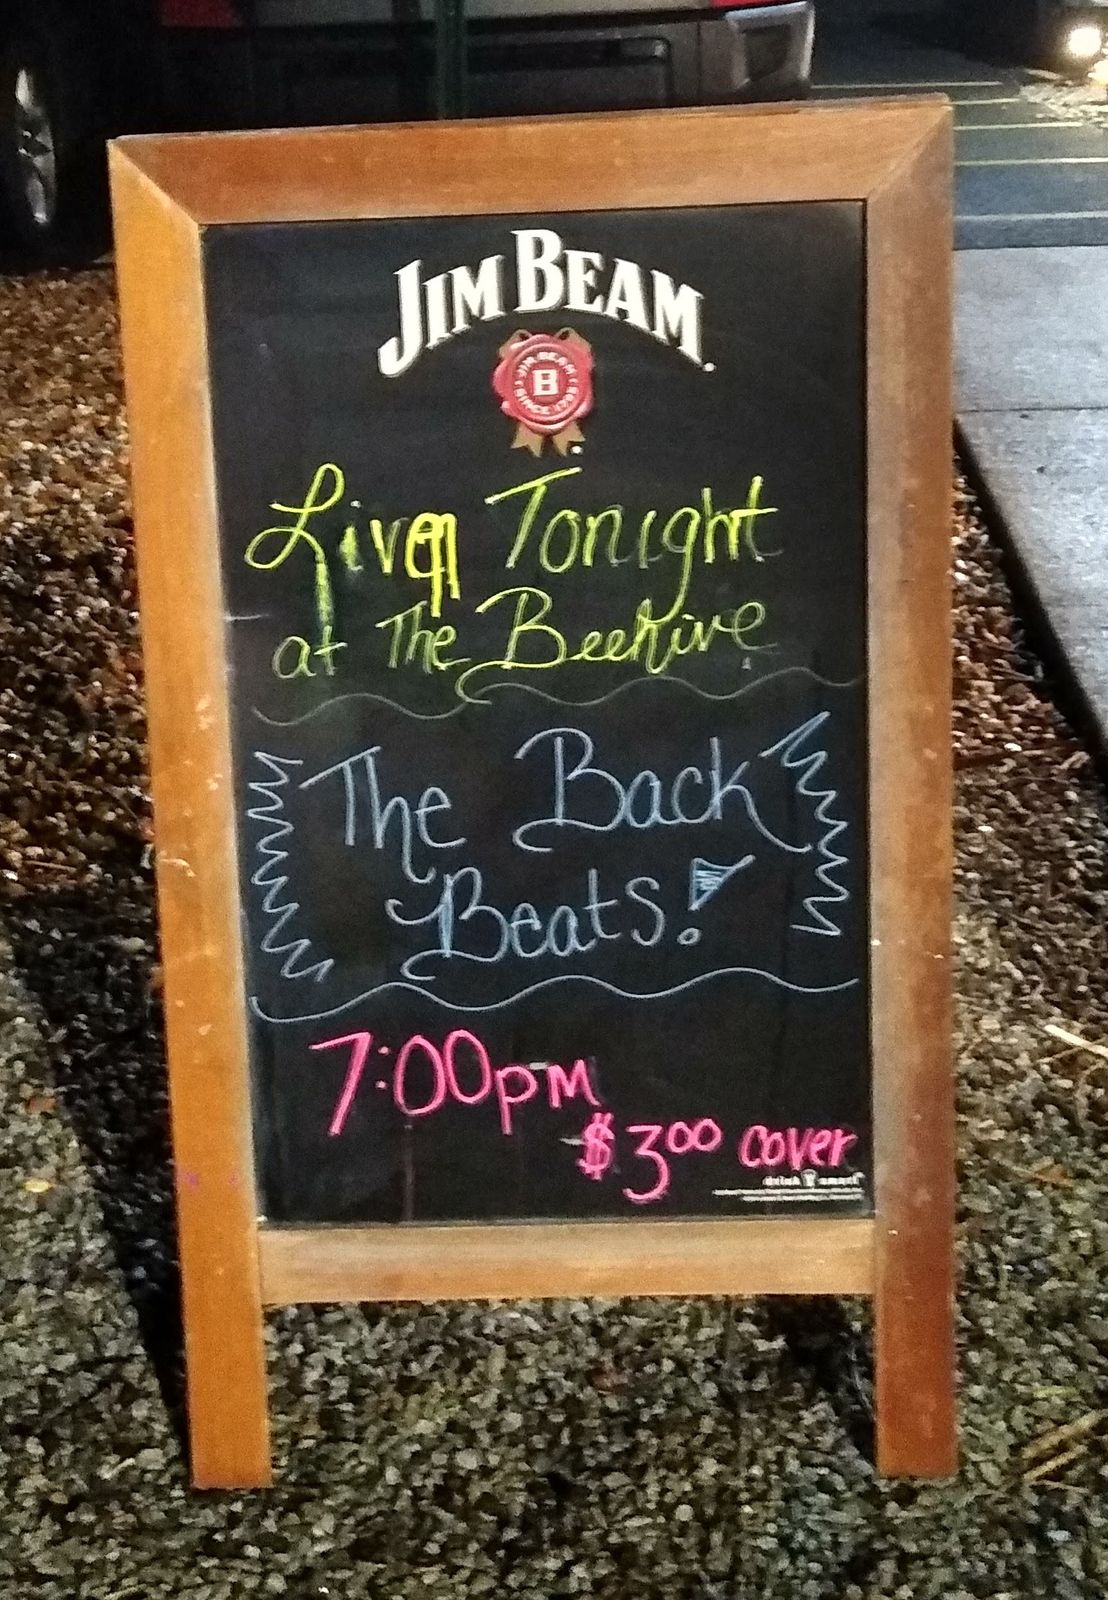 JIM BEAM
JIM BEAM
B
SINCE 1795
Live Tonight
at The Beehive
The Back
Beats!
7:00pm
$3.00 cover
drink smart